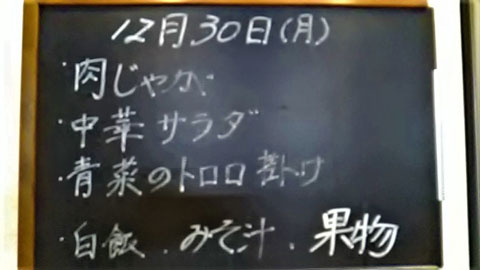 12月30日(月)
・肉じゃが
・中華サラダ
・青菜のトロロ掛け
・白飯.みそ汁.果物